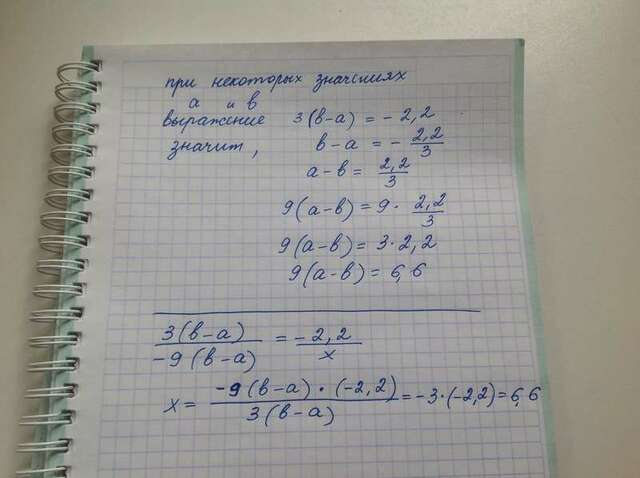 при некоторых значениях
а и в
выражение 3(в-а) = - 2,2
значит, в-а = - 2,2/3
а-в = 2,2/3
9(а-в) = 9 · 2,2/3
9(а-в) = 3·2,2
9(а-в) = 6,6
3(в-а)/-9(в-а) = -2,2/х
х = -9(в-а)·(-2,2)/3(в-а) = -3·(-2,2) = 6,6